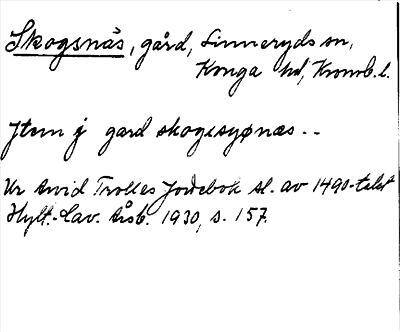 Skogsnäs, gård, Linneryds sn,
Konga hd, Kronob. l.
Jtem j gard skogisyønæs - -
Ur Arvid Trolles Jordebok sl. av 1490-talet
Hylt.-Cav. Årsb. 1930, s. 157.